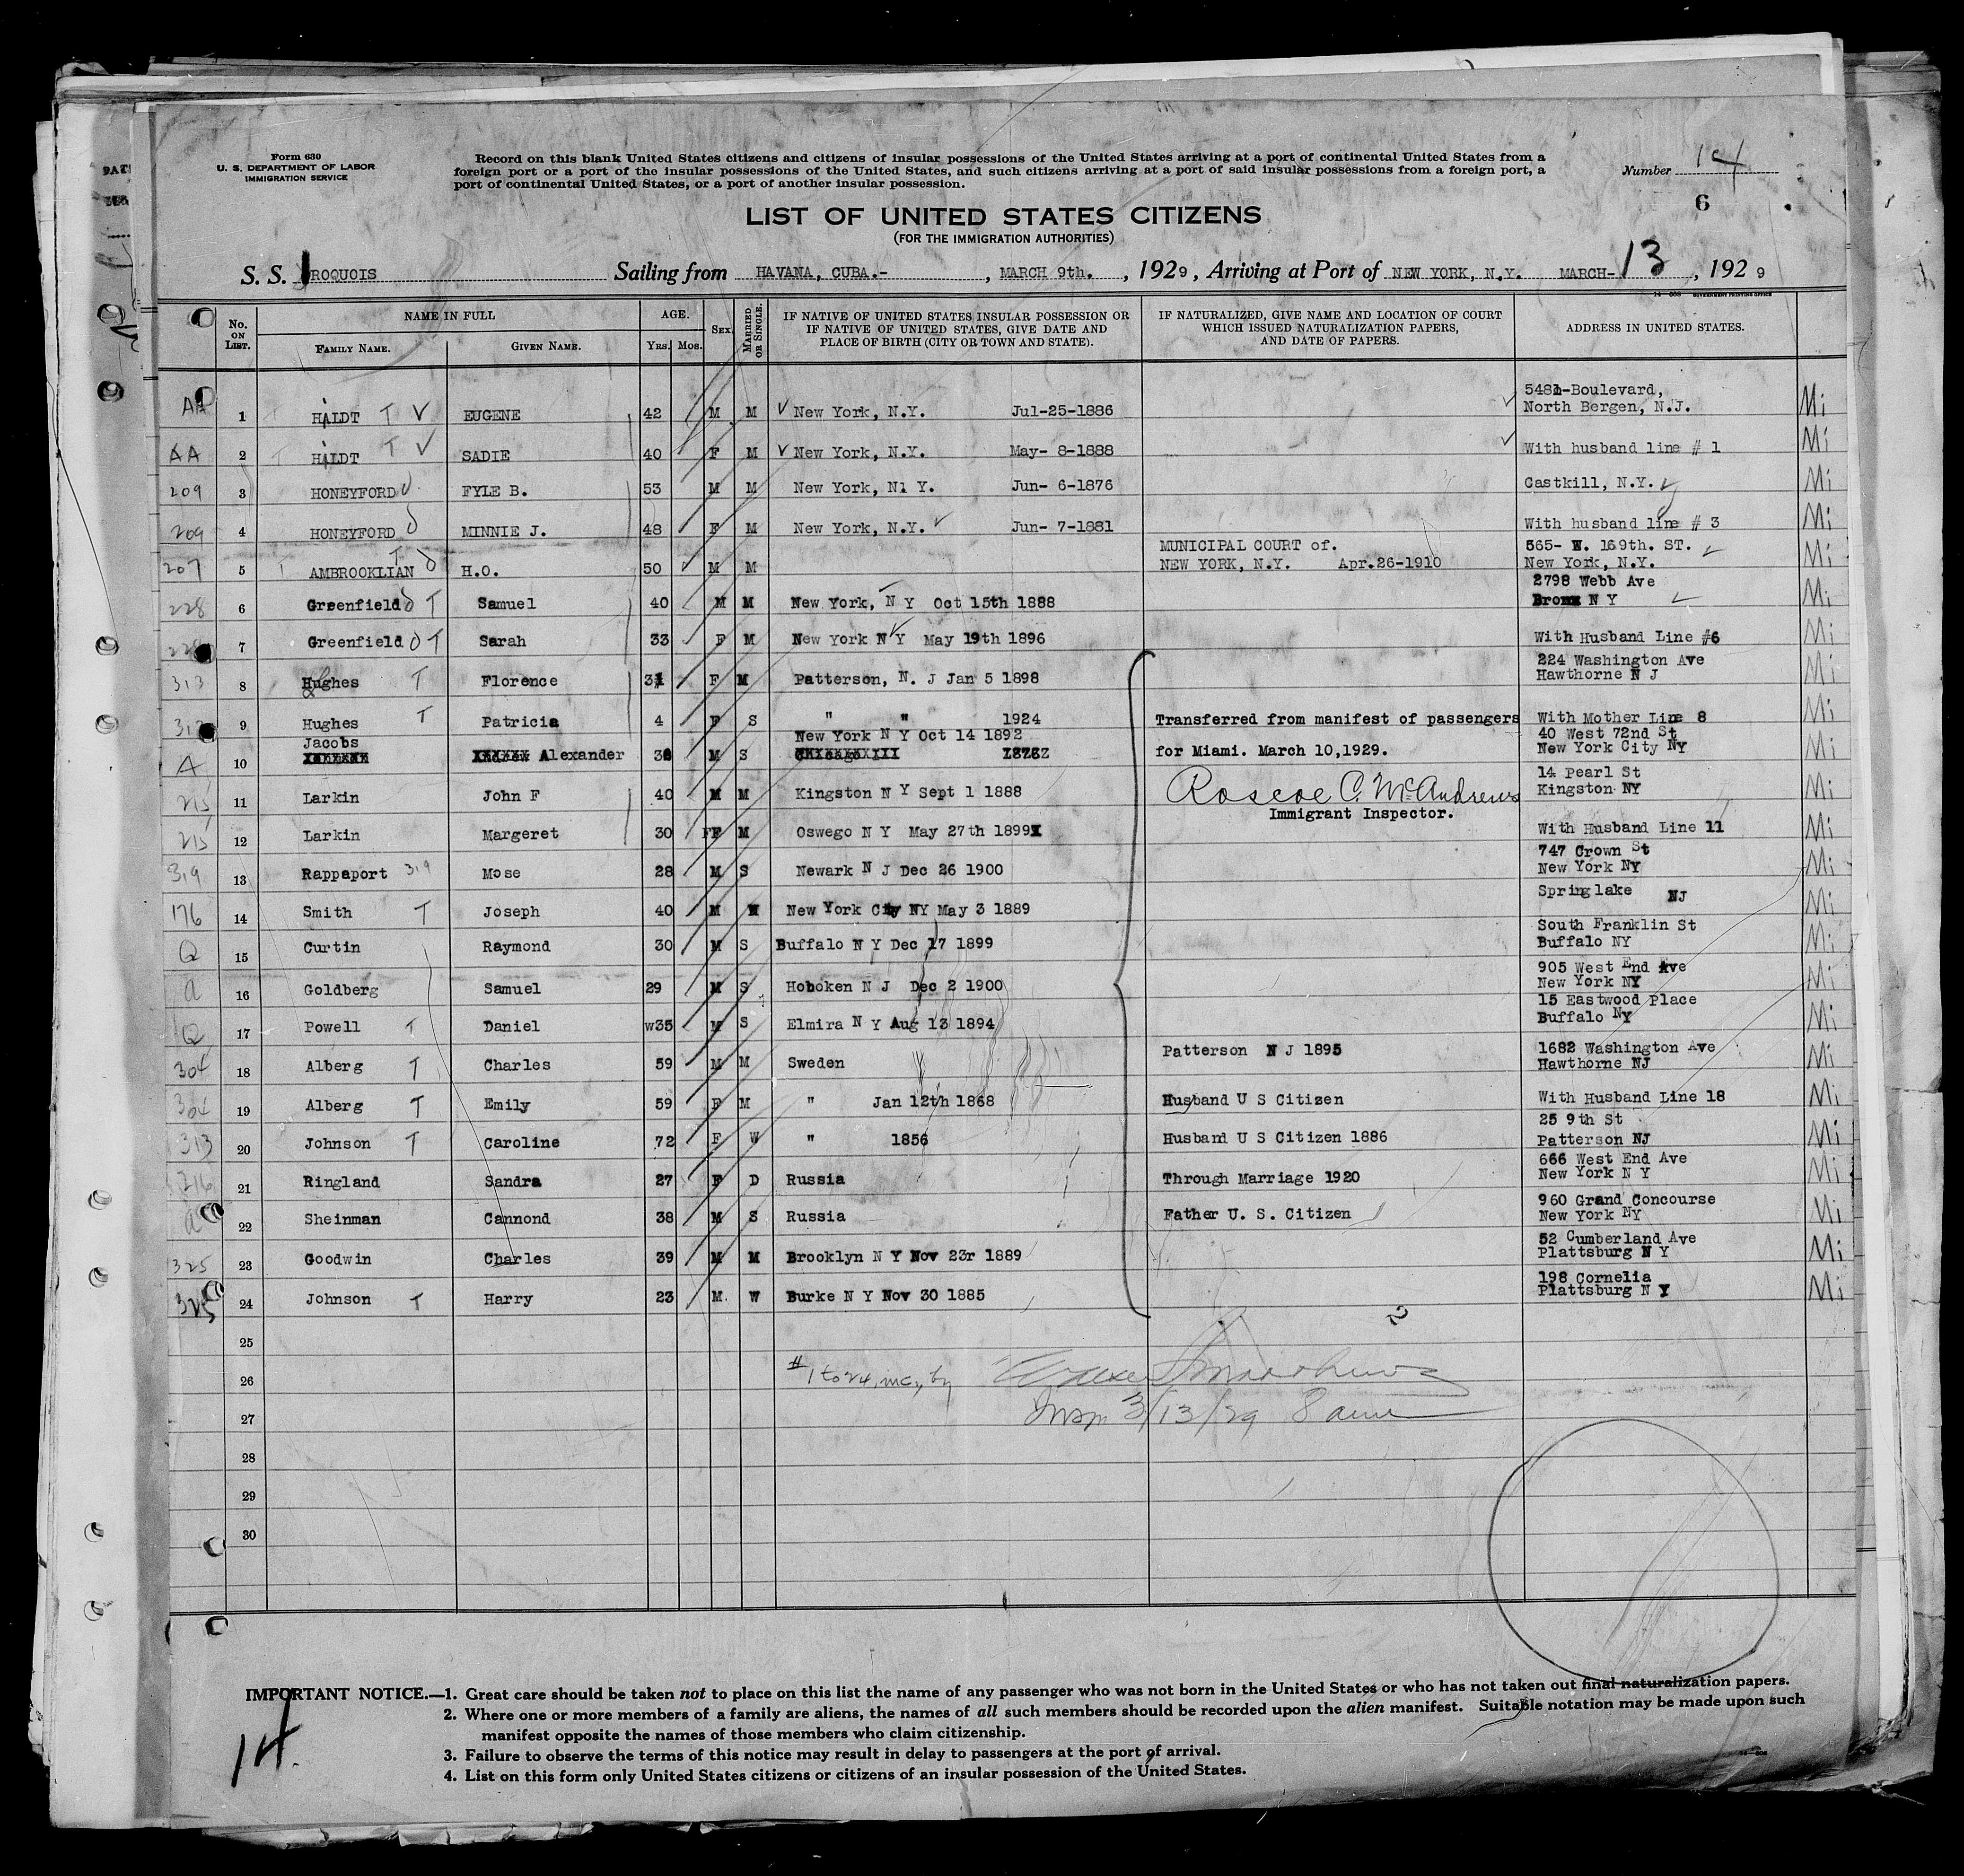 Form 630
U. S. DEPARTMENT OF LABOR
IMMIGRATION SERVICE
Record on this blank United States citizens and citizens of insular possessions of the United States arriving at a port of continental United States from a
foreign port or a port of the insular possessions of the United States, and such citizens arriving at a port of said insular possessions from a foreign port, a
port of continental United States, or a port of another insular possession.
Number 14
6
LIST OF UNITED STATES CITIZENS
(FOR THE IMMIGRATION AUTHORITIES)
S. S. IROQUOIS Sailing from HAVANA, CUBA.- , MARCH 9th. , 1929, Arriving at Port of NEW YORK, N.Y. MARCH- 13 , 1929
No. ON LIST. NAME IN FULL FAMILY NAME. GIVEN NAME. AGE. YRS. MOS. SEX. MARRIED OR SINGLE.
IF NATIVE OF UNITED STATES INSULAR POSSESSION OR
IF NATIVE OF UNITED STATES, GIVE DATE AND
PLACE OF BIRTH (CITY OR TOWN AND STATE).
IF NATURALIZED, GIVE NAME AND LOCATION OF COURT
WHICH ISSUED NATURALIZATION PAPERS,
AND DATE OF PAPERS.
ADDRESS IN UNITED STATES.
5481-Boulevard,
AA 1 HAIDT T V EUGENE 42 M M New York, N.Y. Jul-25-1886 North Bergen, N.J. Mi
AA 2 HAIDT T V SADIE 40 F M New York, N.Y. May- 8-1888 With husband line # 1 Mi
209 3 HONEYFORD FYLE B. 53 M M New York, N1 Y. Jun- 6-1876 Castkill, N.Y. Mi
209 4 HONEYFORD MINNIE J. 48 F M New York, N.Y. Jun- 7-1881 With husband line # 3 Mi
MUNICIPAL COURT of. 565- W. 169th. ST.
207 5 AMBROOKLIAN T H.O. 50 M M NEW YORK, N.Y. Apr.26-1910 New York, N.Y. Mi
2798 Webb Ave
228 6 Greenfield T Samuel 40 M M New York, N Y Oct 15th 1888 Bronx N Y Mi
228 7 Greenfield T Sarah 33 F M New York N Y May 19th 1896 With Husband Line #6 Mi
224 Washington Ave
313 8 Hughes T Florence 31 F M Patterson, N. J Jan 5 1898 Hawthorne N J Mi
313 9 Hughes T Patricia 4 F S " " 1924 Transferred from manifest of passengers With Mother Line 8 Mi
Jacobs New York N Y Oct 14 1892 40 West 72nd St
A 10 Alexander 36 M S for Miami. March 10,1929. New York City NY Mi
14 Pearl St
215 11 Larkin John F 40 M M Kingston N Y Sept 1 1888 Roscoe C. McAndrews Kingston NY Mi
Immigrant Inspector.
215 12 Larkin Margeret 30 F M Oswego N Y May 27th 1899 With Husband Line 11 Mi
747 Crown St
319 13 Rappaport 319 Mose 28 M S Newark N J Dec 26 1900 New York NY Mi
Springlake NJ
176 14 Smith T Joseph 40 M M New York City NY May 3 1889 Mi
South Franklin St
Q 15 Curtin Raymond 30 M S Buffalo N Y Dec 17 1899 Buffalo NY Mi
905 West End Ave
a 16 Goldberg Samuel 29 M S Hoboken N J Dec 2 1900 New York NY Mi
15 Eastwood Place
Q 17 Powell T Daniel w35 M S Elmira N Y Aug 13 1894 Buffalo NY Mi
1682 Washington Ave
304 18 Alberg T Charles 59 M M Sweden Patterson N J 1895 Hawthorne NJ Mi
304 19 Alberg T Emily 59 F M " Jan 12th 1868 Husband U S Citizen With Husband Line 18 Mi
25 9th St
313 20 Johnson T Caroline 72 F W " 1856 Husband U S Citizen 1886 Patterson NJ Mi
666 West End Ave
216 21 Ringland Sandra 27 F D Russia Through Marriage 1920 New York N Y Mi
960 Grand Concourse
a 22 Sheinman Cannond 38 M S Russia Father U. S. Citizen New York NY Mi
52 Cumberland Ave
325 23 Goodwin Charles 39 M M Brooklyn N Y Nov 23r 1889 Plattsburg N Y Mi
198 Cornelia
325 24 Johnson T Harry 23 M. W Burke N Y Nov 30 1885 Plattsburg N Y Mi
2
25
26 #1 to 24, inc., by
27 Insp 3/13/29 8 am
28
29
30
IMPORTANT NOTICE.—1. Great care should be taken not to place on this list the name of any passenger who was not born in the United States or who has not taken out final naturalization papers.
2. Where one or more members of a family are aliens, the names of all such members should be recorded upon the alien manifest. Suitable notation may be made upon such
manifest opposite the names of those members who claim citizenship.
3. Failure to observe the terms of this notice may result in delay to passengers at the port of arrival.
4. List on this form only United States citizens or citizens of an insular possession of the United States.
14